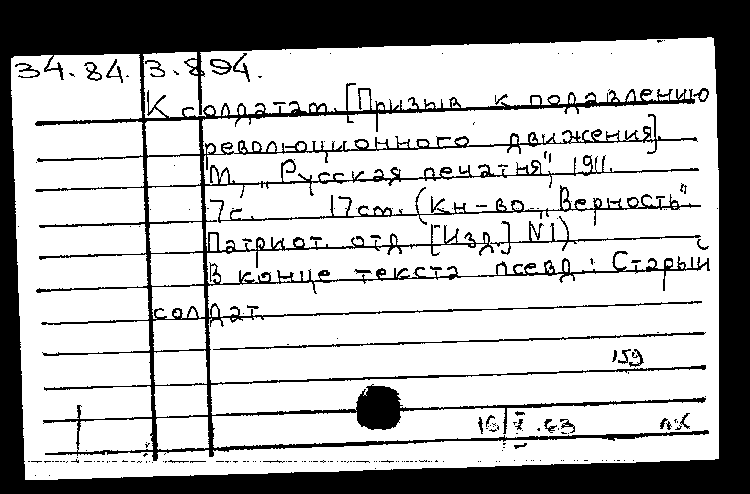 34.84. 3.894.
К солдатам. [Призыв к подавлению
революционного движения].
М., "Русская печатня", 1911.
7с. 17cm. (Кн-во "Верность".
Патриот. отд. [Изд.] N1).
В конце текста псевд.: Старый
солдат.
159
16/V.63 лх